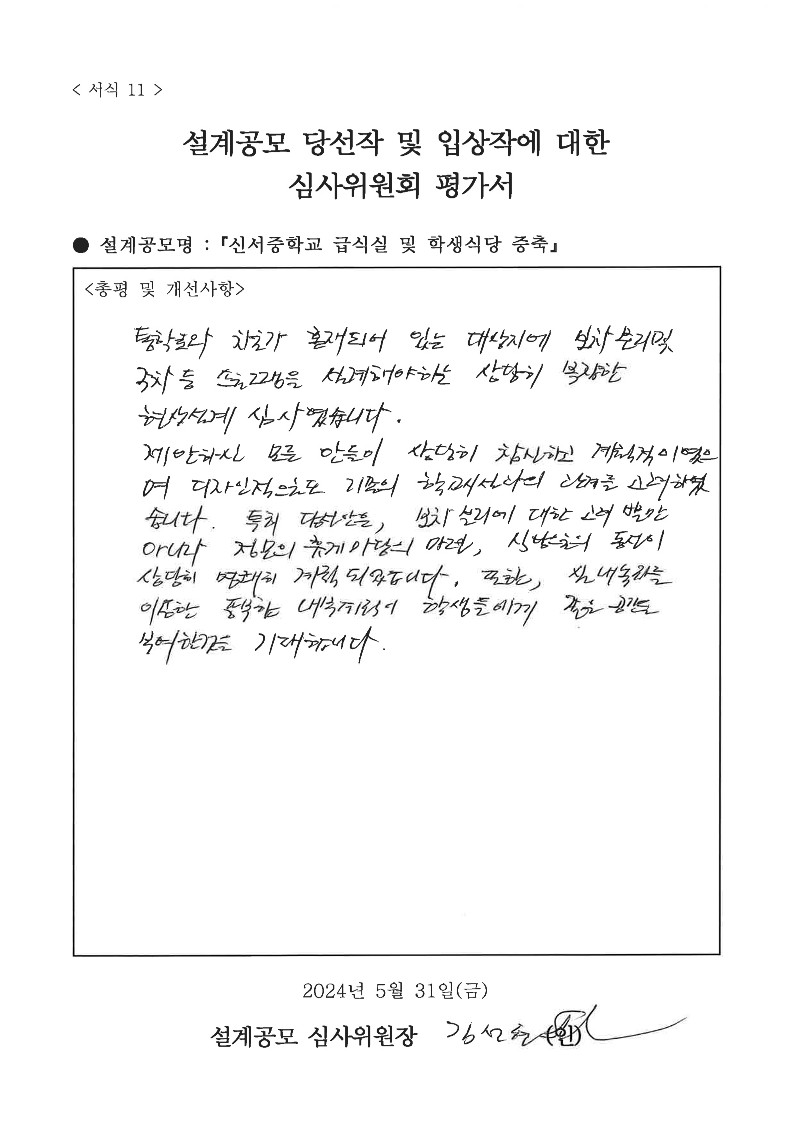 < 서식 11 >
설계공모 당선작 및 입상작에 대한
심사위원회 평가서
● 설계공모명 : 『신서중학교 급식실 및 학생식당 증축』
<총평 및 개선사항>
통학로와 차로가 혼재되어 있는 대상지에 보차분리및
주차 등 스터디를 설계해야하는 상당히 복잡한
현상설계 심사였습니다.
제안하신 모든 안들이 상당히 참신하고 계획적이었으
며 디자인적으로도 기존의 학교시설과의 관계를 고려하였
습니다. 특히 당선안은, 보차분리에 대한 고려 뿐만
아니라 정문의 휴게마당의 마련, 식당으로의 동선이
상당히 명쾌히 계획되었습니다. 또한, 실내녹화를
이용한 풍부한 내부계획이 학생들에게 좋은 공간을
부여할것을 기대합니다.
2024년 5월 31일(금)
설계공모 심사위원장 김선 (인)